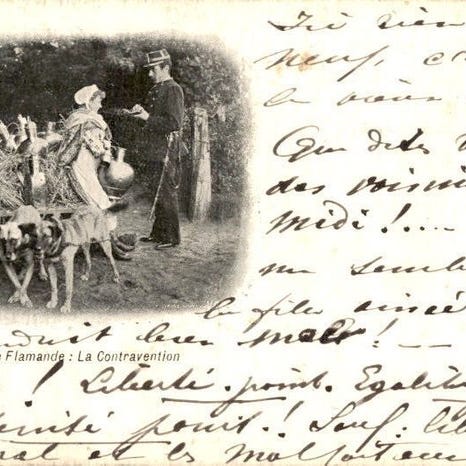 Ici rien
neuf, c'
le vieux
Que dites
des voisin
midi!....
me semb
les filer
conduit bien mal!—
e Flamande : La Contravention
! Liberté point. Egalité
point! Sauf: li
et les malfaiteu